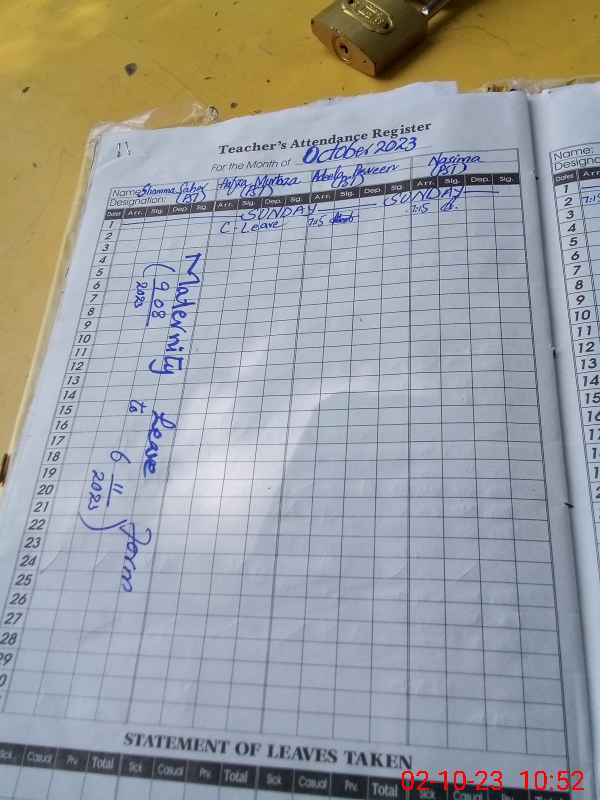 11
Teacher's Attendance Register
For the Month of October 2023
Name: Shamma Sahar Hafza Murtaza Adeela Parveen Nasima
Designation: (PST) (PST) (PST) (PST)
Date Arr. Sig. Dep. Sig. Arr. Sig. Dep. Sig. Arr. Sig. Dep. Sig. Arr. Sig. Dep. Sig.
1 SUNDAY SUNDAY
2 C-Leave 7:15 7:15
3
4
5
6
7
8
9
10
11
12
13
14
15
16
17
18
19
20
21
22
23
24
25
26
27
28
29
Maternity Leave
(9 08 2023 to 6 11 2023)
STATEMENT OF LEAVES TAKEN
Sick Casual Prv. Total Sick Casual Prv. Total Sick Casual Prv. Total
Name:
Designa
Dates Arr.
1
2 7:15
3
4
5
6
7
8
9
10
11
12
13
14
15
16
02-10-23 10:52